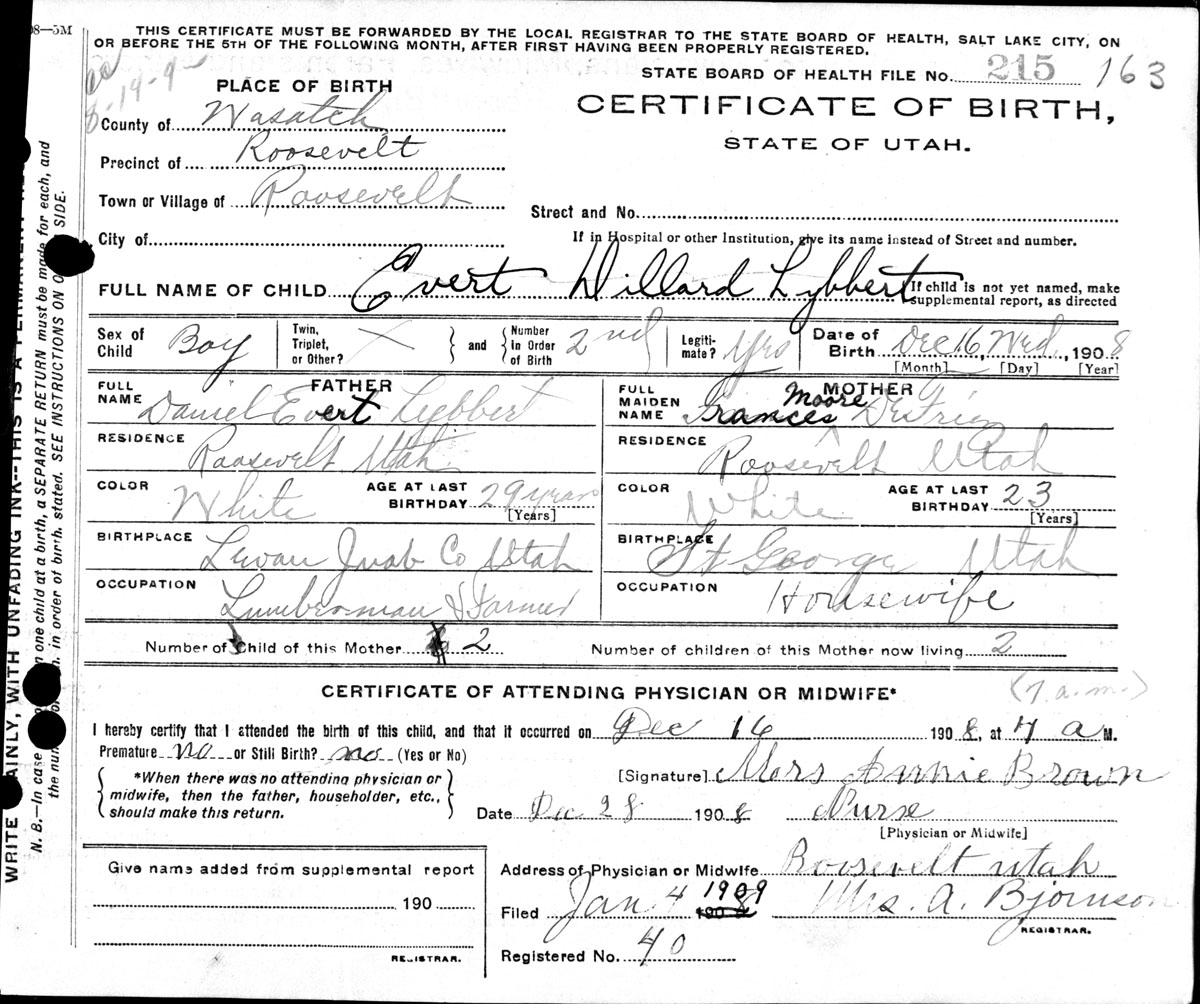 08—5M
THIS CERTIFICATE MUST BE FORWARDED BY THE LOCAL REGISTRAR TO THE STATE BOARD OF HEALTH, SALT LAKE CITY, ON
OR BEFORE THE 5TH OF THE FOLLOWING MONTH, AFTER FIRST HAVING BEEN PROPERLY REGISTERED.
STATE BOARD OF HEALTH FILE NO. 215 163
CERTIFICATE OF BIRTH,
STATE OF UTAH.
PLACE OF BIRTH
County of Wasatch
Precinct of Roosevelt
Town or Village of Roosevelt
Street and No.
City of
If in Hospital or other Institution, give its name instead of Street and number.
FULL NAME OF CHILD Evert Dillard Lybbert
If child is not yet named, make
supplemental report, as directed
Sex of Child Boy Twin, Triplet, or Other? X and Number In Order of Birth 2nd Legiti-mate? Yes Date of Birth Dec 16, Wed, 1908
[Month] [Day] [Year]
FATHER
FULL NAME Daniel Evert Lybbert
RESIDENCE Roosevelt Utah
COLOR White AGE AT LAST BIRTHDAY 29 years
[Years]
BIRTHPLACE Levan Juab Co Utah
OCCUPATION Lumberman & Farmer
MOTHER
FULL MAIDEN NAME Frances Moore DeFriez
RESIDENCE Roosevelt Utah
COLOR White AGE AT LAST BIRTHDAY 23
[Years]
BIRTHPLACE St George Utah
OCCUPATION Housewife
Number of Child of this Mother 2 Number of children of this Mother now living 2
CERTIFICATE OF ATTENDING PHYSICIAN OR MIDWIFE*
(7 a.m.)
I hereby certify that I attended the birth of this child, and that it occurred on Dec 16 1908, at 7 a M.
Premature no or Still Birth? no (Yes or No)
*When there was no attending physician or
midwife, then the father, householder, etc.,
should make this return.
[Signature] Mrs Annie Brown
Date Dec 28 1908 Nurse
[Physician or Midwife]
Give name added from supplemental report
190
REGISTRAR.
Address of Physician or Midwife Roosevelt utah
Filed Jan 4 1909 Mrs. A. Bjornson
REGISTRAR.
Registered No. 40
AINLY, WITH UNFADING INK--THIS IS A PERMANENT
N. B.—In case one child at a birth, a SEPARATE RETURN must be made for each, and
the in order of birth, stated. SEE INSTRUCTIONS ON SIDE.